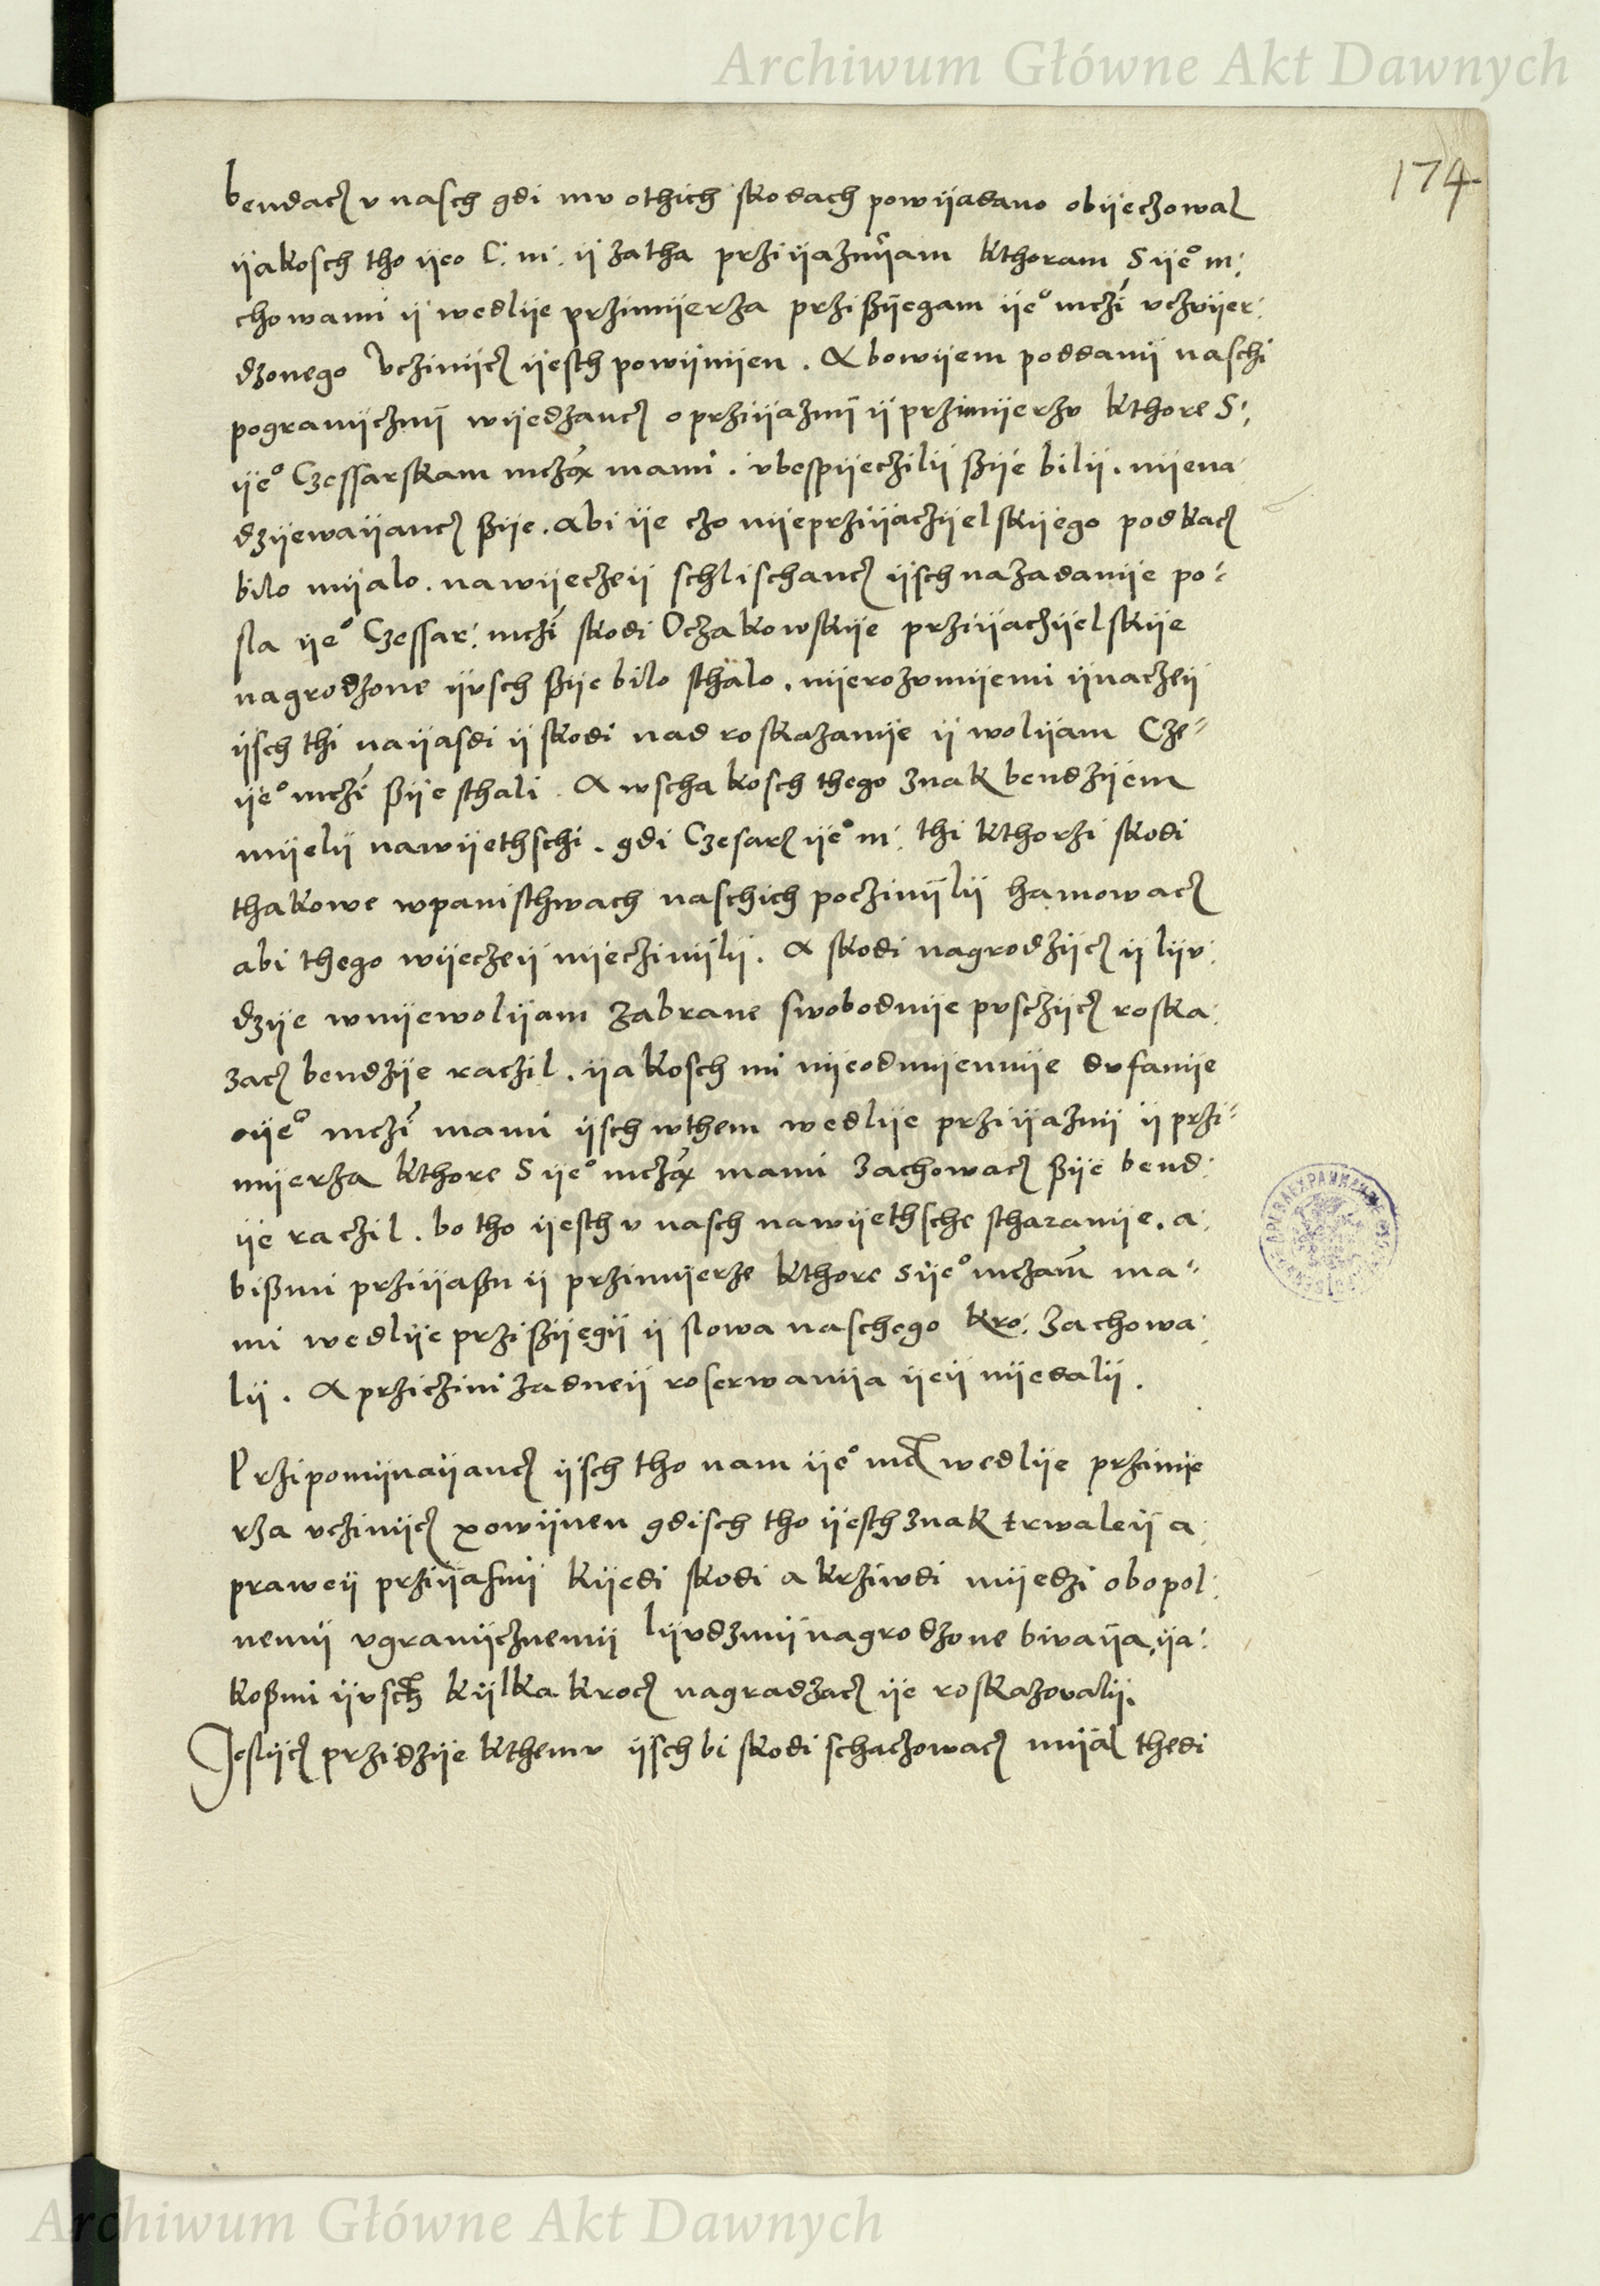 Archiwum Główne Akt Dawnych
174
bendacz v nasch gdi mv othich skodach powijadano obijeczowal
ijakosch tho ijeo C: m: ij zatha przijaznijam kthoram S ije° m:
chowami ij wedlije przimijerza prziszijegam ije° mczi vczvijer:
dzonego vczinijcz ijesth powijnijen. Abowijem poddanij naschi
pogranijcznij wijedzancz o przijaznij ij przimijerzv kthore S:
ije° Czessarskam mczą mami. vbespijeczilij szije bilij. nijena
dzijewaijancz szije. abi ije czo nijeprzijaczijelskijego podkacz
bilo mijalo. nawijeczeij schlischancz ijsch nazadanije po:
sla ije° Czessar: mczi skodi Oczakowskije przijaczijelskije
nagrodzone ijvsch szije bilo sthalo. nijerozvmijemi ijnaczeij
ijsch thi naijasdi ij skodi nad roskazanije ij wolijam Cze:
ije° mczi szije sthali. A wschakosch thego znak bendzijem
mijelij nawijethschi. gdi Czesarz ije° m: thi kthorzi skodi
thakowe wpanisthwach naschich poczinijlij hamowacz
abi thego wijeczeij nijeczinijlij. A skodi nagrodzijcz ij lijv:
dzije wnijewolijam zabrane swobodnije pvsczijcz roska:
zacz bendzije raczil. ijakosch mi nijeodmijennije dvfanije
oije° mczi mami ijsch wthem wedlije przijaznij ij przi:
mijerza kthore S ije° mczą mami zachowacz szije bend:
ije raczil. bo tho ijesth v nasch nawijethsche stharanije. a:
biszmi przijaszn ij przimijerze kthore s ije° mczam ma:
mi wedlije przisijegij ij slowa naschego kro: zachowa:
lij. A prziczini zadneij roserwanija ijeij nijedalij.
Przipomijnaijancz ijsch tho nam ije° mcz wedlije przimije
rza vczinijcz powijnen gdisch tho ijesth znak trwaleij a
praweij przijasnij kijedi skodi a krziwdi mijedzi obopol:
nemij vgranijcznemij lijvdzmij nagrodzone bivaija, ija:
koszmi ijvsch kijlka krocz nagradzacz ije roskazovalij.
Jeslijcz przidzije kthemv ijsch bi skodi schaczowacz mijal thedi
Archiwum Główne Akt Dawnych